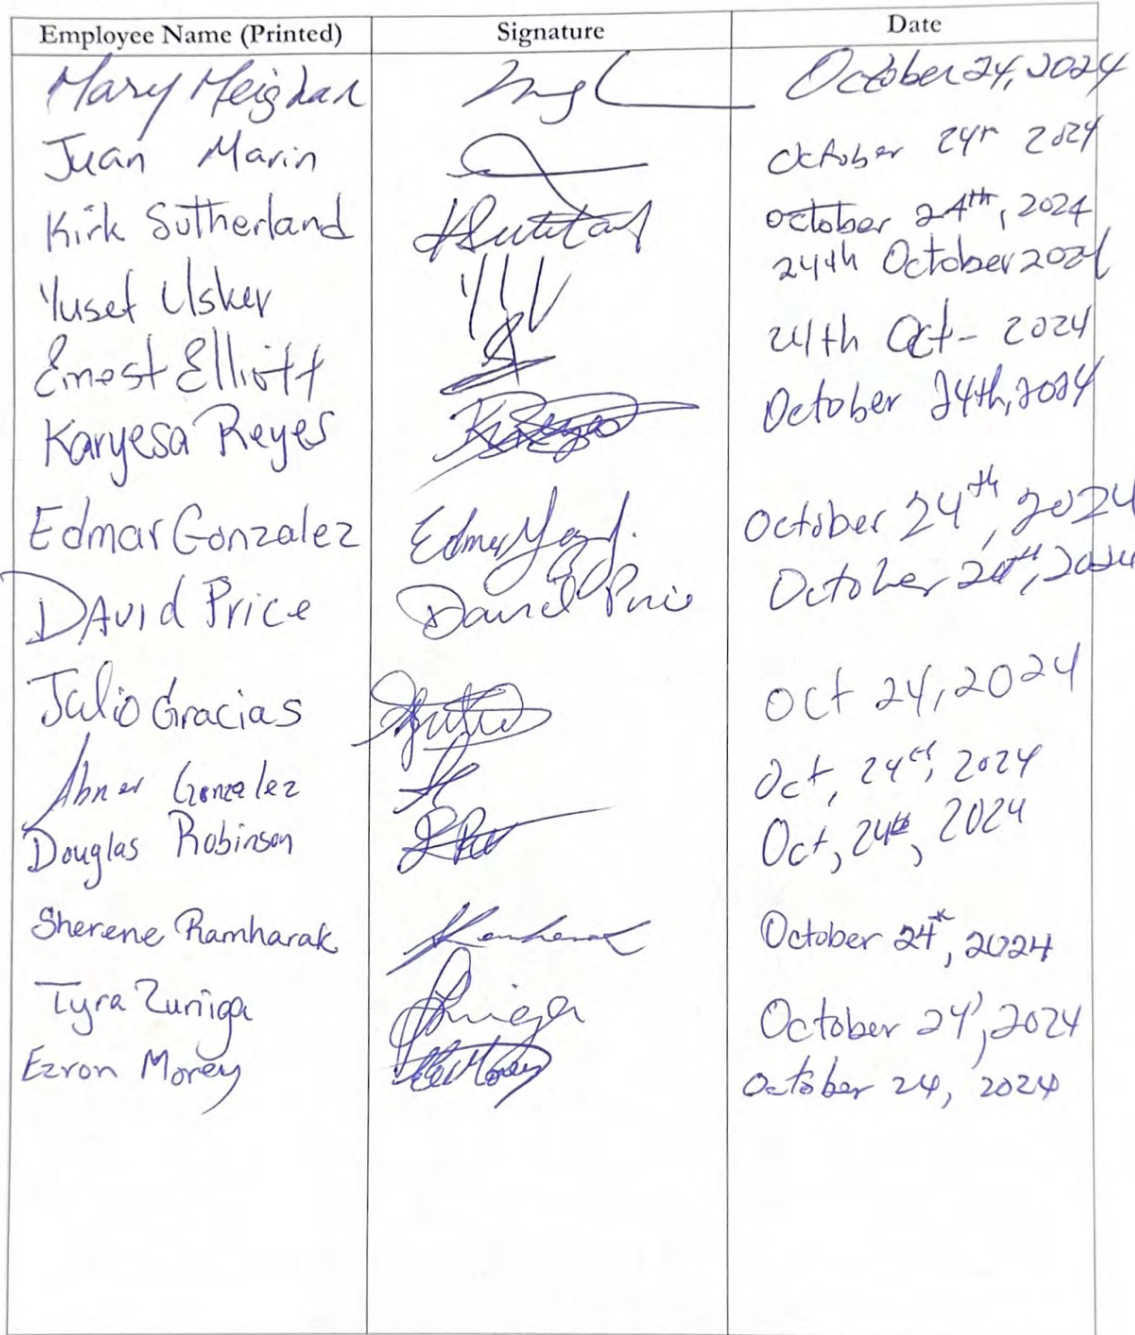 Employee Name (Printed) Signature Date
Mary Meighan October 24, 2024
Juan Marin October 24th 2024
Kirk Sutherland October 24th, 2024
Yusef Usker 24th October 2024
Ernest Elliott 24th Oct - 2024
Karyesa Reyes K Reyes October 24th, 2024
Edmar Gonzalez October 24th, 2024
DAvid Price David Price October 24th, 2024
Julio Gracias Oct 24, 2024
Abner Gonzalez Oct, 24th, 2024
Douglas Robinson Oct, 24th, 2024
Sherene Ramharak October 24th, 2024
Tyra Zuniga October 24, 2024
Ezron Morey October 24, 2024